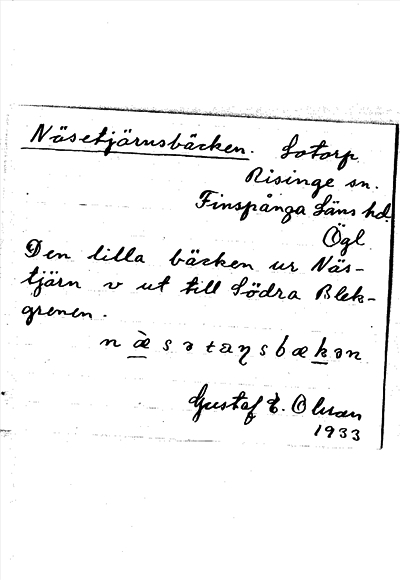 Näsetjärnsbäcken. Lotorp
Risinge sn.
Finspånga Läns hd.
Ögl
Den lilla bäcken ur Näs-
tjärn v ut till Södra Blek-
grenen.
næ̀sətæɳsbækən
Gustaf E. Olsson
1933